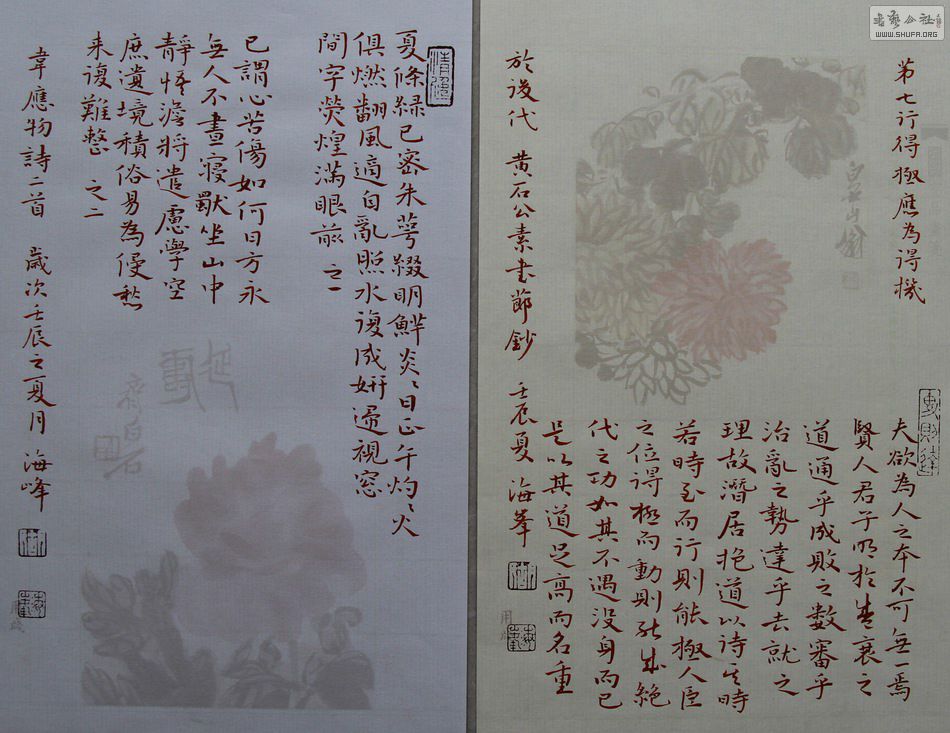 書藝公社
WWW.SHUFA.ORG
第七行得極應為得機
夫欲為人之本不可無一焉
賢人君子明於盛衰之
道通乎成敗之數審乎
治亂之勢達乎去就之
理故潛居抱道以待其時
若時至而行則能極人臣
之位得極而動則能成絕
代之功如其不遇沒身而已
是以其道足高而名重
於後代 黃石公素書節鈔 壬辰夏 海峯
白石山翁
夏條綠已密朱萼綴明鮮炎〻日正午灼〻火
俱燃翻風適自亂照水復成妍歸視窗
間字熒煌滿眼前 之一
已謂心苦傷如何日方永
無人不晝寢獨坐山中
靜悟澹將遣慮學空
庶遺境積俗易為侵愁
來復難整 之二
韋應物詩二首 歲次壬辰之夏月 海峰
齊白石